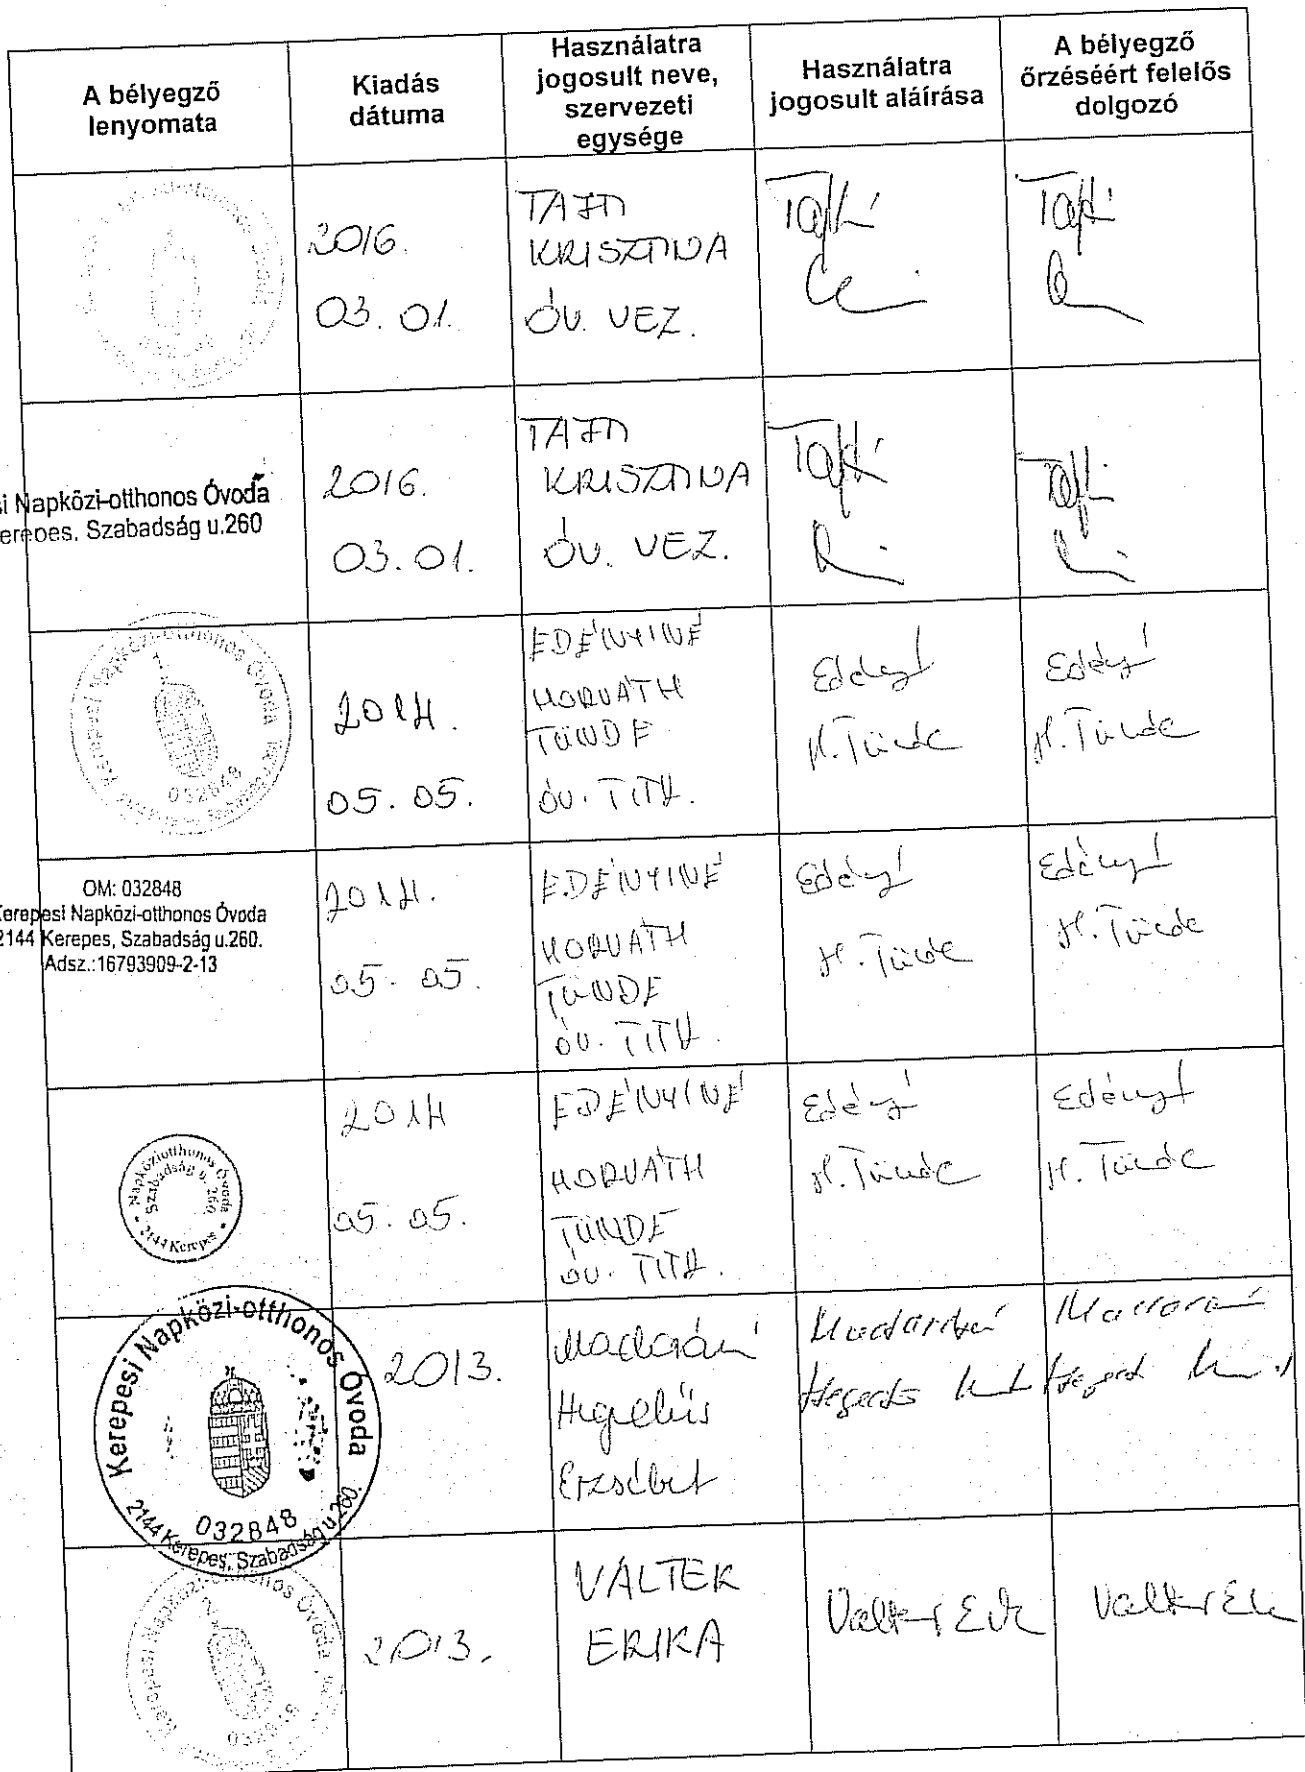 A bélyegző
lenyomata
Kiadás
dátuma
Használatra
jogosult neve,
szervezeti
egysége
Használatra
jogosult aláírása
A bélyegző
őrzéséért felelős
dolgozó
2016.
03. 01.
TAJTI
KRISZTINA
ÓV. VEZ.
si Napközi-otthonos Óvoda
erepes, Szabadság u.260
2016.
03. 01.
TAJTI
KRISZTINA
ÓV. VEZ.
Kerepesi Napközi-otthonos Óvoda
032848
2014.
05. 05.
EDÉNYINÉ
HORVÁTH
TÜNDE
ÓV. TITK.
Edényi
H. Tünde
Edényi
H. Tünde
OM: 032848
Kerepesi Napközi-otthonos Óvoda
2144 Kerepes, Szabadság u.260.
Adsz.:16793909-2-13
2014.
05. 05.
EDÉNYINÉ
HORVÁTH
TÜNDE
ÓV. TITK.
Edényi
H. Tünde
Edényi
H. Tünde
Napköziotthonos Óvoda
Szabadság u. 260.
2144 Kerepes
2014
05. 05.
EDÉNYINÉ
HORVÁTH
TÜNDE
ÓV. TITK.
Edényi
H. Tünde
Edényi
H. Tünde
Kerepesi Napközi-otthonos Óvoda
032848
2144 Kerepes, Szabadság u.260.
2013.
Madarán
Hegedűs
Erzsébet
2013.
VALTER
ERIKA
Valter
Valter